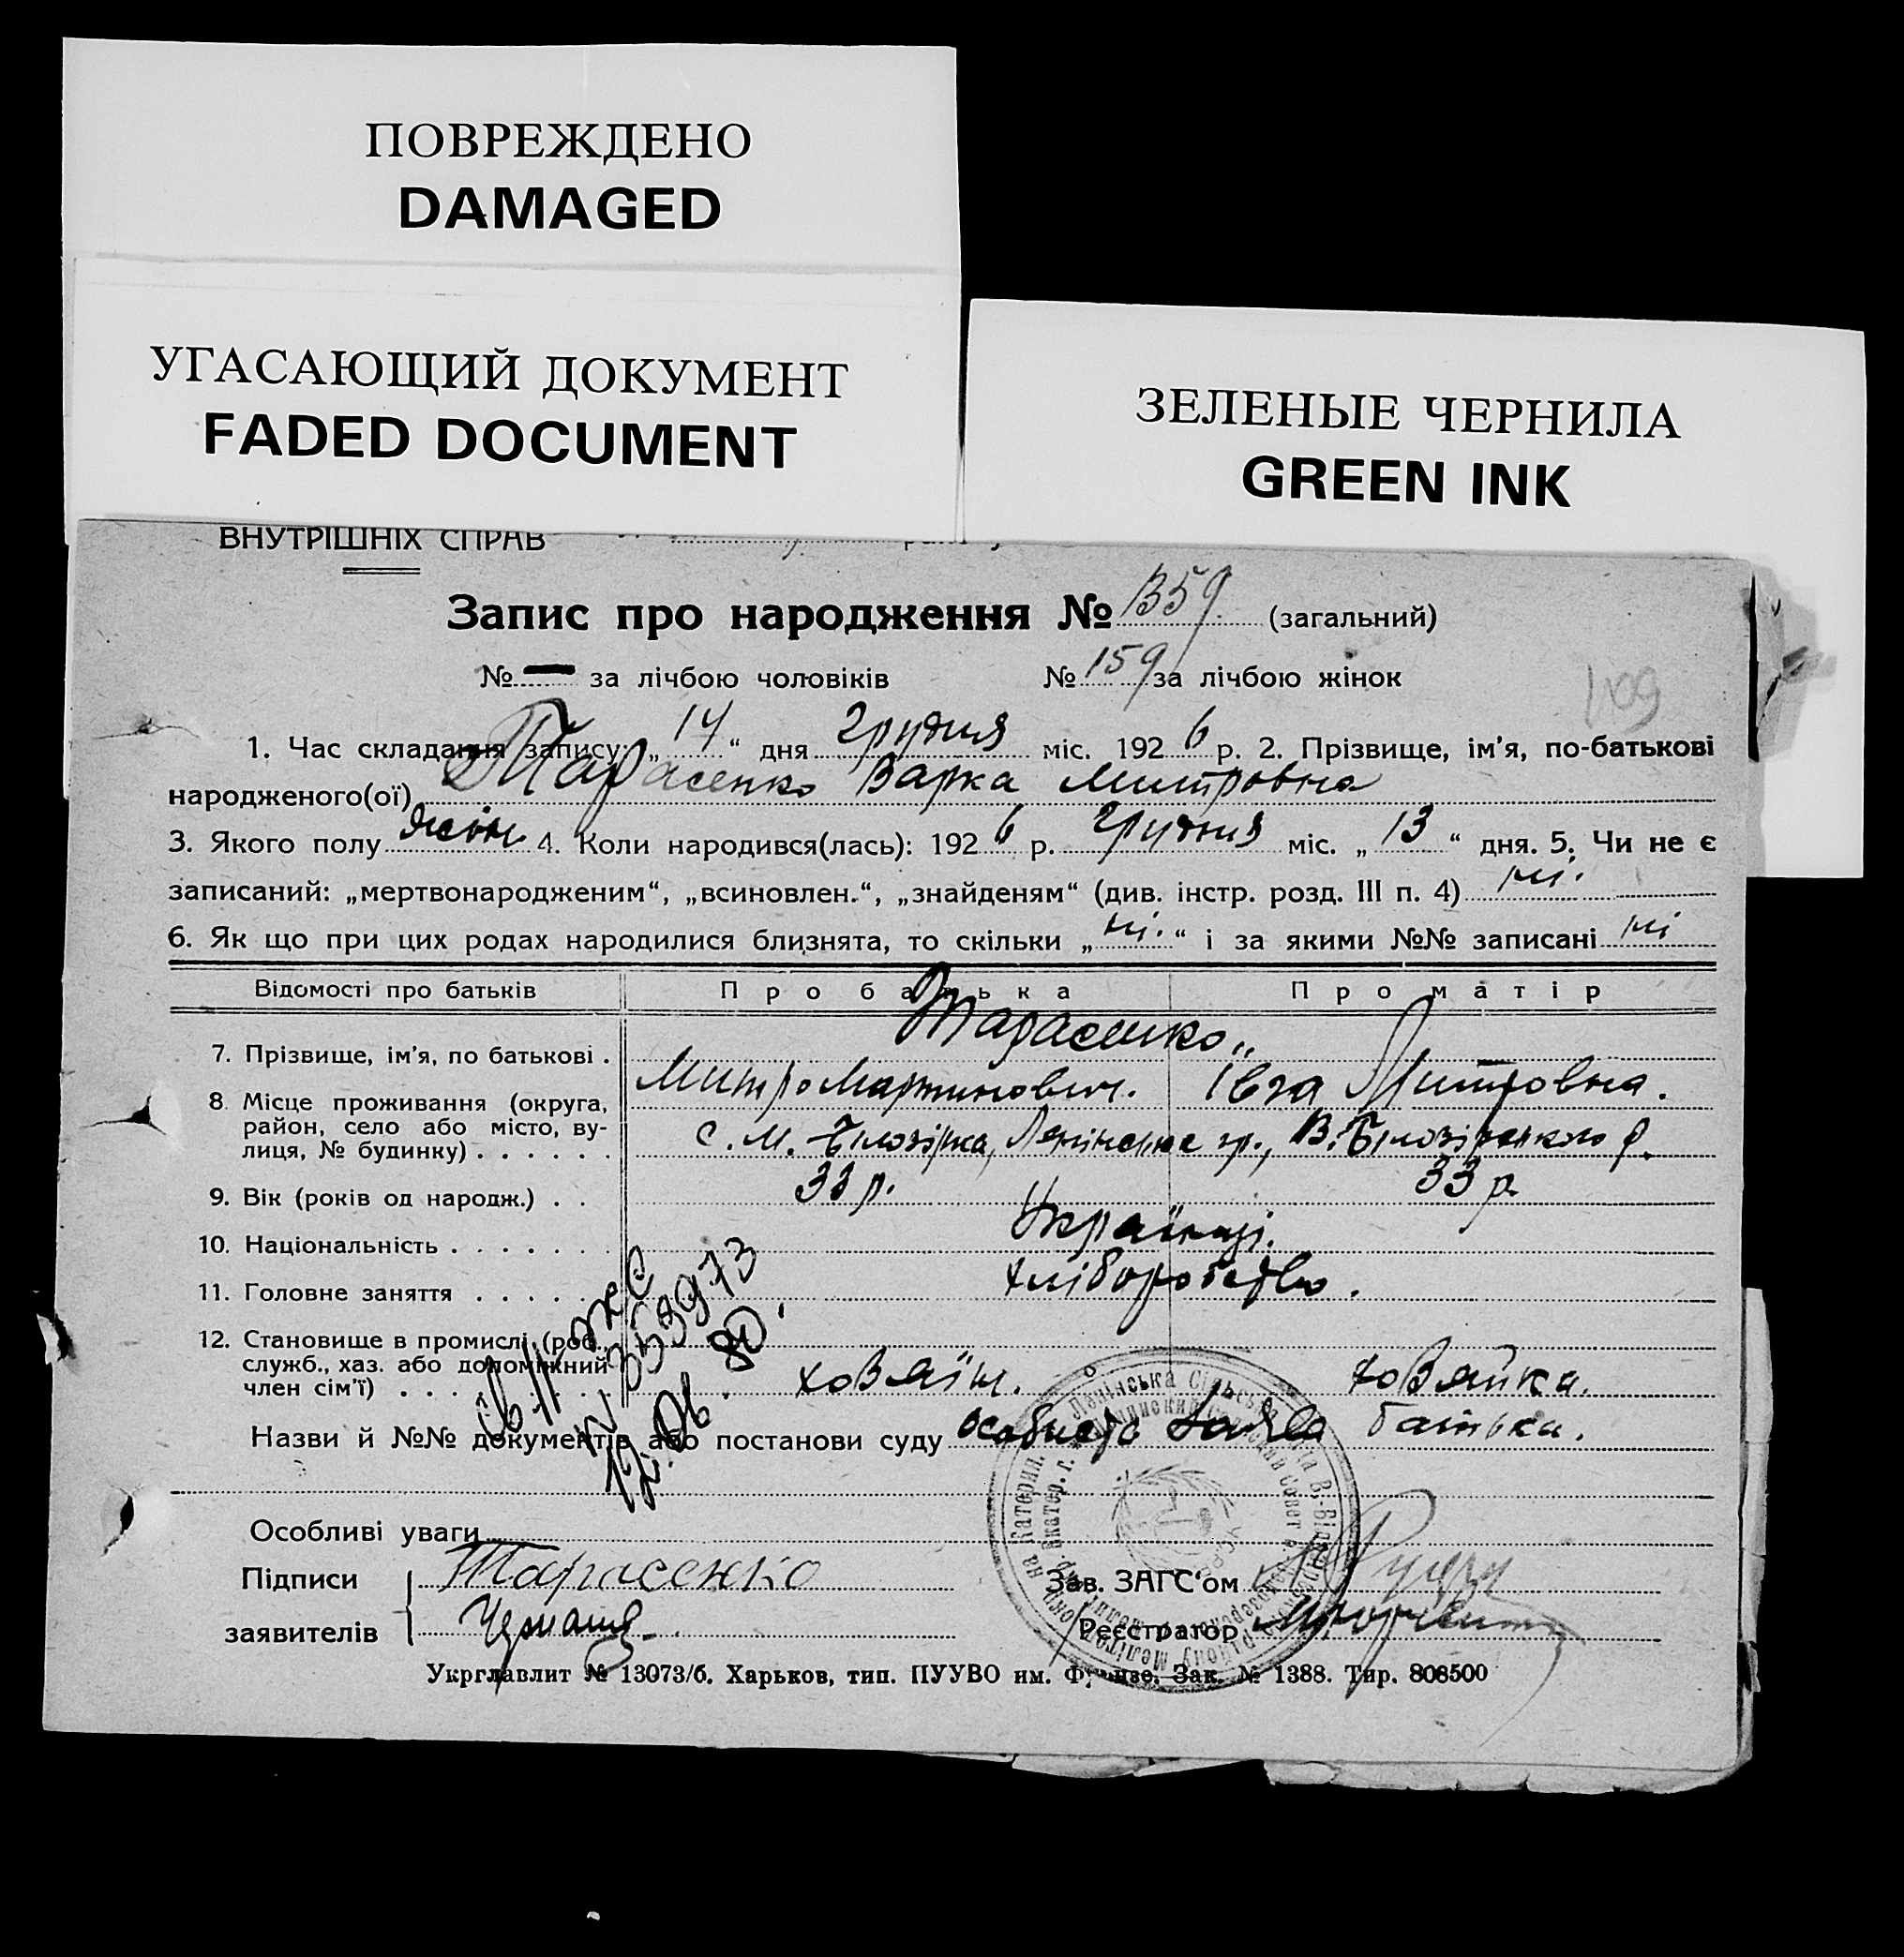 ПОВРЕЖДЕНО
DAMAGED
УГАСАЮЩИЙ ДОКУМЕНТ
FADED DOCUMENT
ЗЕЛЕНЫЕ ЧЕРНИЛА
GREEN INK
ВНУТРІШНІХ СПРАВ
Запис про народження № 359 (загальний)
№ — за лічбою чоловіків № 159 за лічбою жінок
109
1. Час складання запису: „ 14 “ дня грудня міс. 192 6 р. 2. Прізвище, ім'я, по-батькові
народженого(ої) Тарасенко Варка Митровна
3. Якого полу жін 4. Коли народився(лась): 192 6 р. грудня міс. „ 13 “ дня. 5. Чи не є
записаний: „мертвонародженим“, „всиновлен.“, „знайденям“ (див. інстр. розд. III п. 4) ні.
6. Як що при цих родах народилися близнята, то скільки „ ні. “ і за якими №№ записані ні
Відомості про батьків Про батька Про матір
Тарасенко
7. Прізвище, ім'я, по батькові . Митро Мартинович. Івга Митровна.
8. Місце проживання (округа, район, село або місто, вулиця, № будинку) . . . . . . с. М. Білозірка, Ленінське гр., В. Білозірського р.
9. Вік (років од народж.) . . 33 р. 33 р.
10. Національність . . . . . . . Українці.
11. Головне заняття . . . . . . хліборобство.
12. Становище в промислі (роб., служб., хаз. або допоміжний член сім'ї) . . . . . . . . . хозяїн. хозяйка.
353973
12.06.80.
Назви й №№ документів або постанови суду особиста заява батька.
Особливі уваги
Підписи Тарасенко Зав. ЗАГС'ом
заявителів Реєстратор
Укрглавлит № 13073/б. Харьков, тип. ПУУВО им. Фрунзе. Зак. № 1388. Тир. 808500